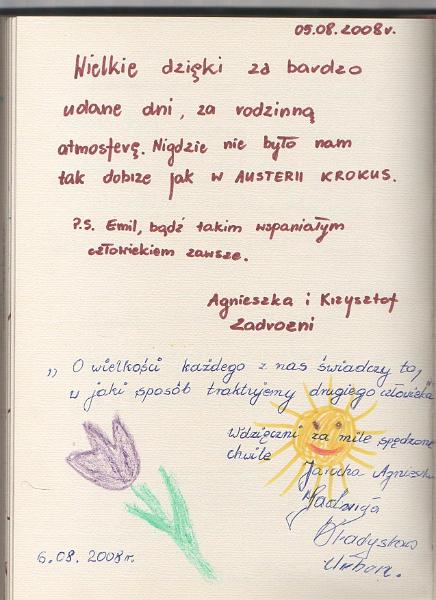 05.08.2008r.
Wielkie dzięki za bardzo
udane dni, za rodzinną
atmosferę. Nigdzie nie było nam
tak dobrze jak w AUSTERII KROKUS.
P.S. Emil, bądź takim wspaniałym
człowiekiem zawsze.
Agnieszka i Krzysztof
Zadrozni
,, O wielkości każdego z nas świadczy to,
w jaki sposób traktujemy drugiego człowieka"
Wdzięczni za mile spędzone
chwile
Agnieszka
Jadwiga
Władysław
6.08.2008r.